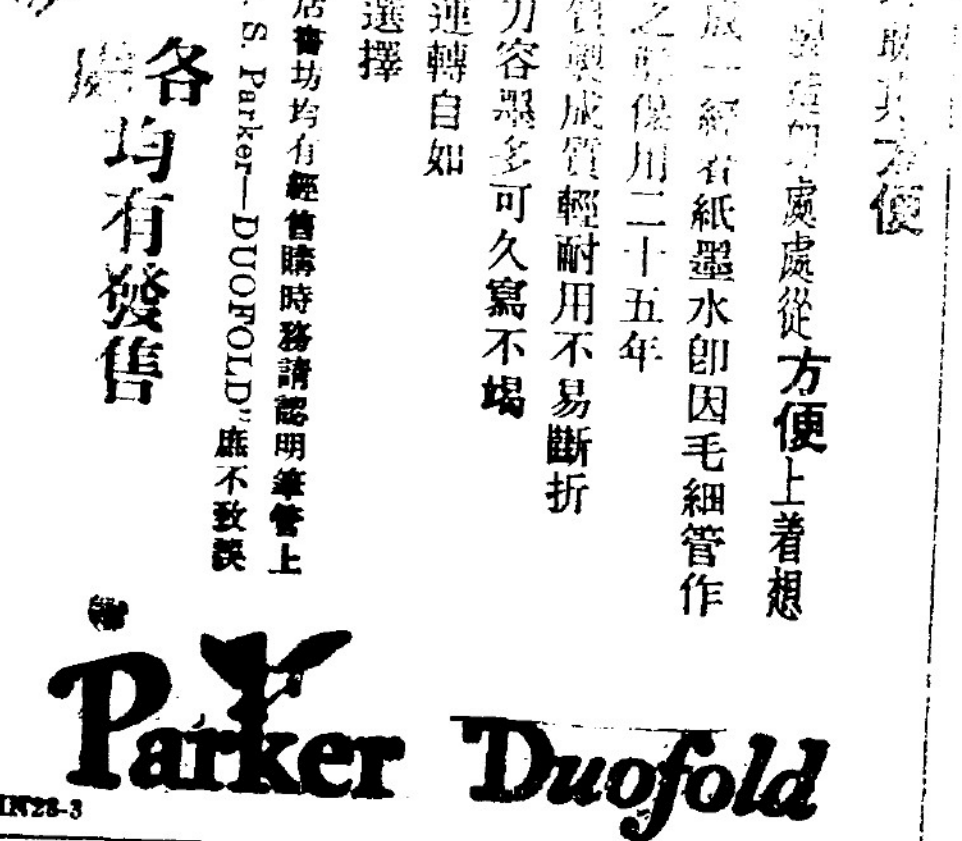 取其方便
製造却處處從方便上着想
成一經着紙墨水卽因毛細管作
之 保用二十五年
質製成質輕耐用不易斷折
力容墨多可久寫不竭
運轉自如
選擇
店書坊均有經售購時務請認明筆管上
. S. Parker—DUOFOLD"庶不致誤
各處均有發售
Parker Duofold
IN28-3